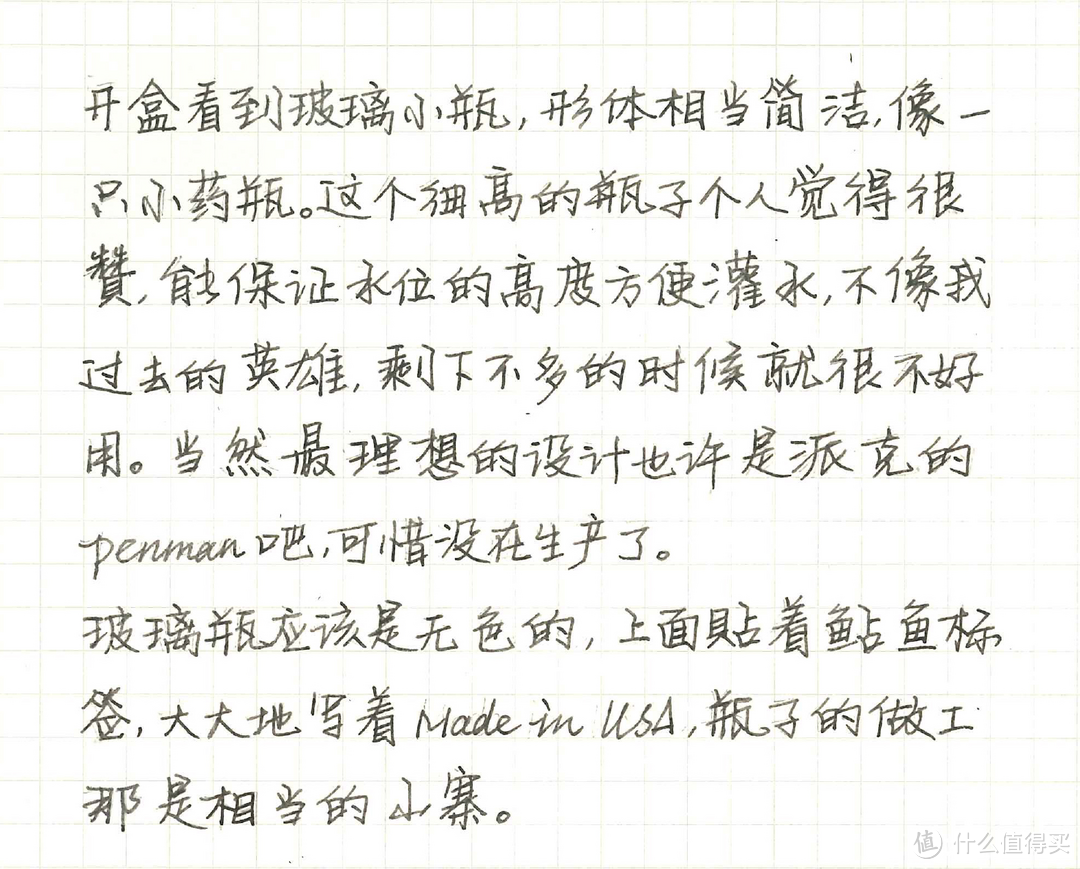 开盒看到玻璃小瓶,形体相当简洁,像一
只小药瓶。这个细高的瓶子个人觉得很
赞,能保证水位的高度方便灌水,不像我
过去的英雄,剩下不多的时候就很不好
用。当然最理想的设计也许是派克的
penman吧,可惜没在生产了。
玻璃瓶应该是无色的,上面贴着鲇鱼标
签,大大地写着Made in USA,瓶子的做工
那是相当的山寨。
值 什么值得买